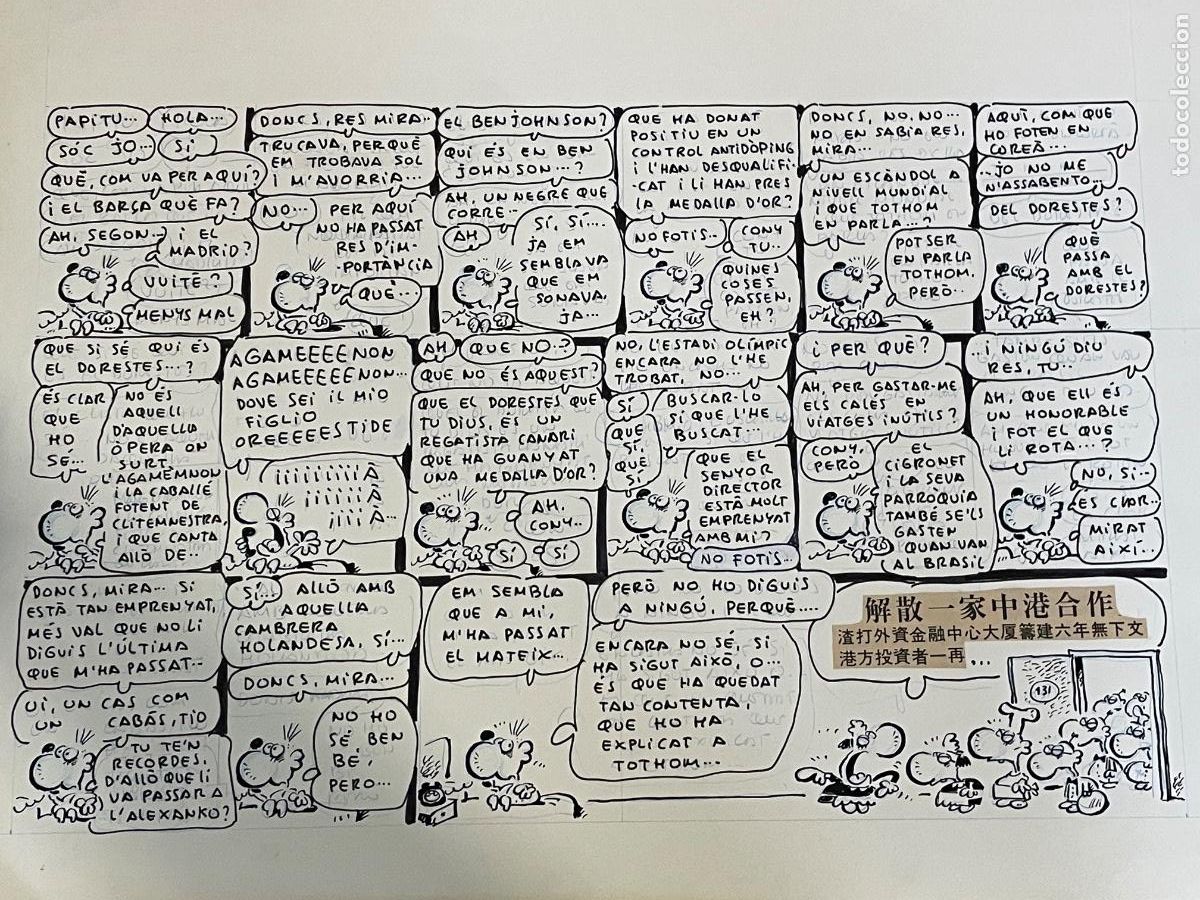 PAPITU...
HOLA...
SÓC JO...
SÍ
QUÈ, COM VA PER AQUÍ?
¡ EL BARÇA QUÈ FA?
AH, SEGON...
¡ EL
MADRID?
VUITÈ?
MENYS MAL
DONCS, RES MIRA..
TRUCAVA, PERQUÈ
EM TROBAVA SOL
I M'AVORRIA...
NO...
PER AQUÍ
NO HA PASSAT
RES D'IM-
PORTÀNCIA
QUÈ...
EL BEN JOHNSON?
QUI ÉS EN BEN
JOHNSON...?
AH, UN NEGRE QUE
CORRE...
AH
SÍ, SÍ...
JA EM
SEMBLAVA
QUE EM
SONAVA,
JA...
QUE HA DONAT
POSITIU EN UN
CONTROL ANTIDÒPING
I L'HAN DESQUALIFI-
CAT I LI HAN PRES
LA MEDALLA D'OR?
NO FOTIS..
CONY
TU..
QUINES
COSES
PASSEN,
EH?
DONCS, NO, NO...
NO EN SABIA RES,
MIRA...
UN ESCÀNDOL A
NIVELL MUNDIAL
I QUE TOTHOM
EN PARLA...?
POTSER
EN PARLA
TOTHOM,
PERÒ...
AQUÍ, COM QUE
HO FOTEN EN
COREÀ...
..JO NO ME
N'ASSABENTO...
DEL DORESTES?
QUÈ
PASSA
AMB EL
DORESTES?
QUE SI SÉ QUI ÉS
EL DORESTES...?
ÉS CLAR
QUE
HO
SÉ...
NO ÉS
AQUELL
D'AQUELLA
ÒPERA ON
SURT
L'AGAMÈMNON
I LA CABALLÉ
FOTENT DE
CLITEMNESTRA,
I QUE CANTA
ALLÒ DE...
AGAMEEEENON
AGAMEEEENON...
DOVE SEI IL MIO
FIGLIO
OREEEEESTIDE
¡¡¡¡¡¡¡ À
¡¡¡¡¡¡ À
¡¡¡¡ À...
AH
QUE NO..?
QUE NO ÉS AQUEST?
QUE EL DORESTES QUE
TU DIUS, ÉS UN
REGATISTA CANARI
QUE HA GUANYAT
UNA MEDALLA D'OR?
AH,
CONY..
SÍ
SÍ
NO, L'ESTADI OLÍMPIC
ENCARA NO L'HE
TROBAT, NO...
SÍ
QUE
SÍ,
QUE
SÍ
BUSCAR-LO
SÍ QUE L'HE
BUSCAT...
QUE EL
SENYOR
DIRECTOR
ESTÀ MOLT
EMPRENYAT
AMB MI?
NO FOTIS...
¡ PER QUÈ?
AH, PER GASTAR-ME
ELS CALÉS EN
VIATGES INÚTILS?
CONY,
PERÒ
EL
CIGRONET
I LA SEVA
PARRÒQUIA
TAMBÉ SE'LS
GASTEN
QUAN VAN
AL BRASIL
..¡ NINGÚ DIU
RES, TU..
AH, QUE ELL ÉS
UN HONORABLE
I FOT EL QUE
LI ROTA...?
NO, SÍ...
ÉS CLAR..
MIRAT
AIXÍ...
DONCS, MIRA... SI
ESTÀ TAN EMPRENYAT,
MÉS VAL QUE NO LI
DIGUIS L'ÚLTIMA
QUE M'HA PASSAT...
UI, UN CAS COM
UN CABÀS, TIO
TU TE'N
RECORDES,
D'ALLÒ QUE LI
VA PASSAR A
L'ALEXANKO?
SÍ...
ALLÒ AMB
AQUELLA
CAMBRERA
HOLANDESA, SÍ...
DONCS, MIRA...
NO HO
SÉ BEN
BÉ,
PERO...
EM SEMBLA
QUE A MI,
M'HA PASSAT
EL MATEIX...
PERÒ NO HO DIGUIS
A NINGÚ, PERQUÈ....
ENCARA NO SÉ, SI
HA SIGUT AIXÒ, O...
ÉS QUE HA QUEDAT
TAN CONTENTA,
QUE HO HA
EXPLICAT A
TOTHOM...
解散一家中港合作
渣打外資金融中心大厦籌建六年無下文
港方投資者一再...
131
todocoleccion